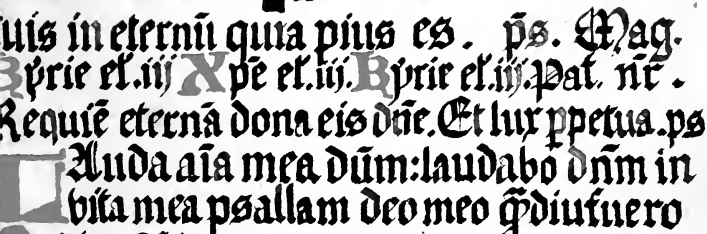 tuis in eternū quia pius es. p̄s. Mag.
Kyrie el̄.iij Xpē el̄.iij. Kyrie el̄.iij. Pat̄. nr̄.
Requiē eternā dona eis dn̄e. Et lux ꝑpetua. ps
Lauda aīa mea dūm: laudabo dn̄m in
vita mea psallam deo meo q̄̄diu fuero